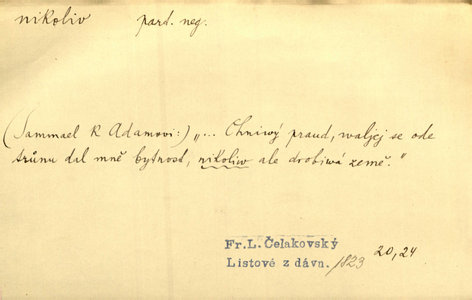 nikoliv pard. neg.
(Sammael k Adamovi:) „... Chniwý praud, waljcj se ode
trůnu dal mně bytnost, nikoliw ale drobiwá země."
Fr. L. Čelakovský
Listové z dávn. 1823 20,24